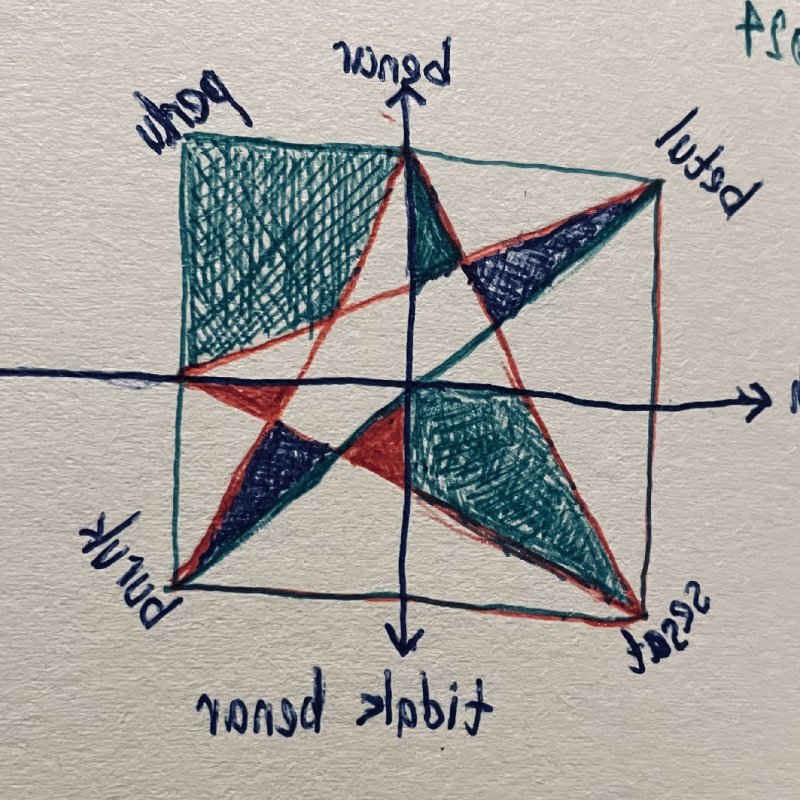 24
benar
perlu
betul
buruk
sesat
tidak benar